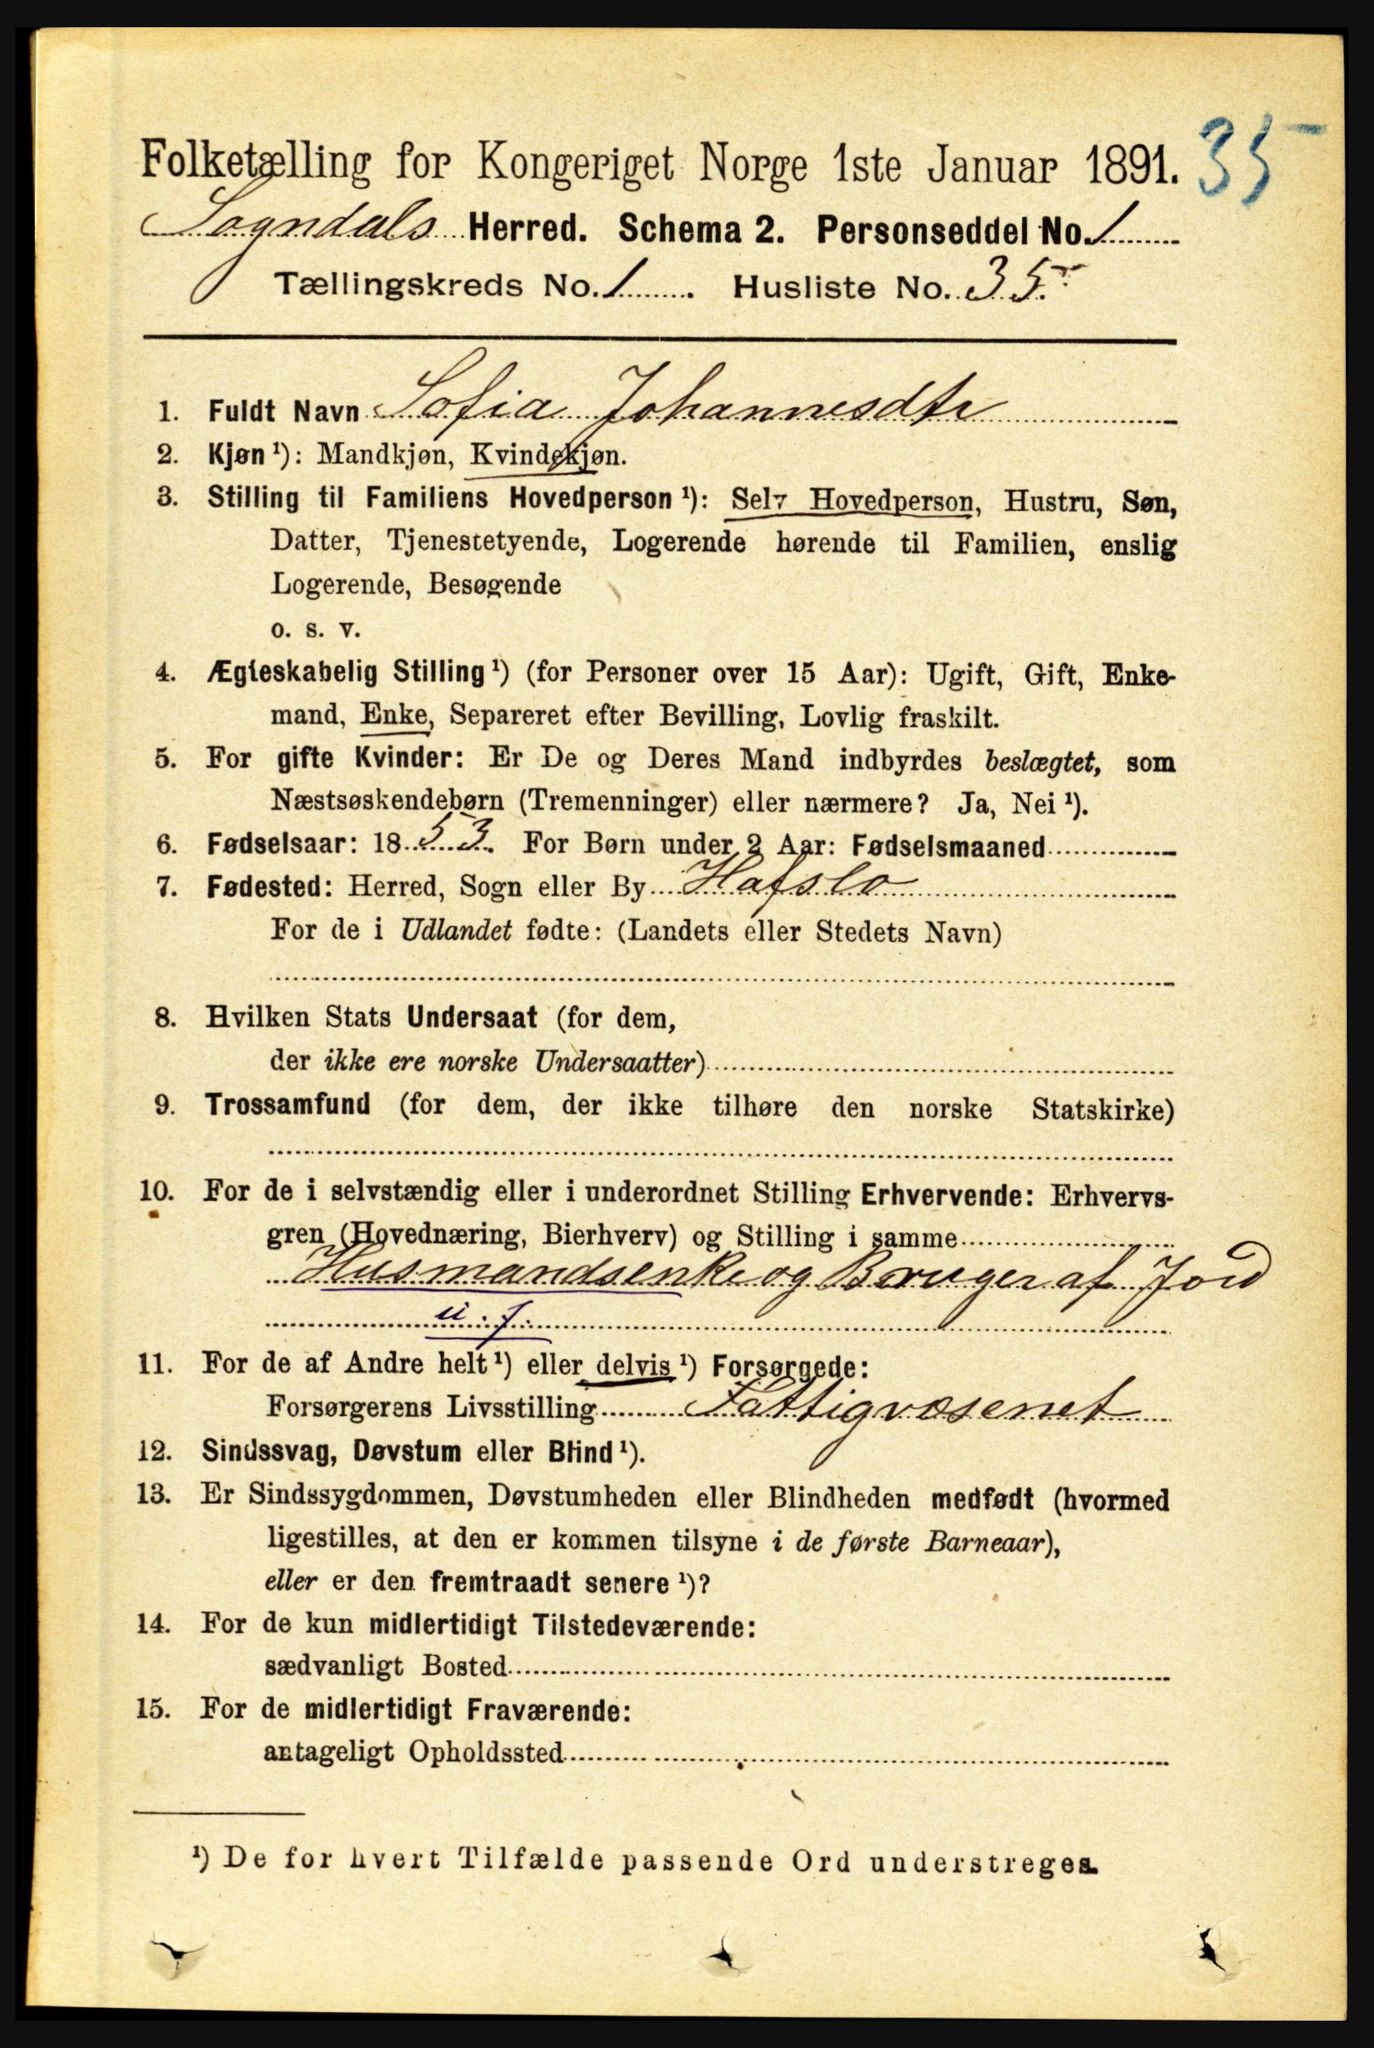 35
Folketælling for Kongeriget Norge 1ste Januar 1891.
Sogndals Herred. Schema 2. Personseddel No. 1
Tællingskreds No. 1. Husliste No. 35.
1. Fuldt Navn Sofia Johannesdtr
2. Kjøn ¹): Mandkjøn, Kvindekjøn.
3. Stilling til Familiens Hovedperson ¹): Selv Hovedperson, Hustru, Søn,
Datter, Tjenestetyende, Logerende hørende til Familien, enslig
Logerende, Besøgende
o. s. v.
4. Ægteskabelig Stilling ¹) (for Personer over 15 Aar): Ugift, Gift, Enke-
mand, Enke, Separeret efter Bevilling, Lovlig fraskilt.
5. For gifte Kvinder: Er De og Deres Mand indbyrdes beslægtet, som
Næstsøskendebørn (Tremenninger) eller nærmere? Ja, Nei ¹).
6. Fødselsaar: 1853. For Børn under 2 Aar: Fødselsmaaned
7. Fødested: Herred, Sogn eller By Hafslo
For de i Udlandet fødte: (Landets eller Stedets Navn)
8. Hvilken Stats Undersaat (for dem,
der ikke ere norske Undersaatter)
9. Trossamfund (for dem, der ikke tilhøre den norske Statskirke)
10. For de i selvstændig eller i underordnet Stilling Erhvervende: Erhvervs-
gren (Hovednæring, Bierhverv) og Stilling i samme
Husmandsenke og Bruger af Jord
u. f.
11. For de af Andre helt ¹) eller delvis ¹) Forsørgede:
Forsørgerens Livsstilling Fattigvæsenet
12. Sindssvag, Døvstum eller Blind ¹).
13. Er Sindssygdommen, Døvstumheden eller Blindheden medfødt (hvormed
ligestilles, at den er kommen tilsyne i de første Barneaar),
eller er den fremtraadt senere ¹)?
14. For de kun midlertidigt Tilstedeværende:
sædvanligt Bosted
15. For de midlertidigt Fraværende:
antageligt Opholdssted
¹) De for hvert Tilfælde passende Ord understreges.